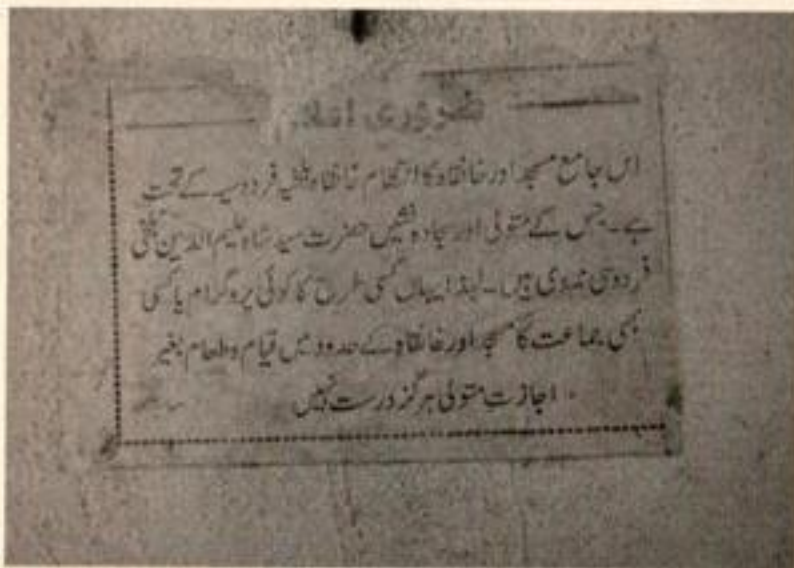 ضروری اعلان
اس جامع مسجد اور خانقاہ کا انتظام خانقاہ بلخیہ فردوسیہ کے تحت
ہے۔ جس کے متولی اور سجادہ نشیں حضرت سید شاہ علیم الدین بلخی
فردوسی ندوی ہیں۔ لہٰذا یہاں کسی طرح کا کوئی پروگرام یا کسی
بھی جماعت کا مسجد اور خانقاہ کے حدود میں قیام و طعام بغیر
اجازتِ متولی ہرگز درست نہیں